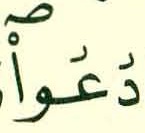 دَعَوا۟